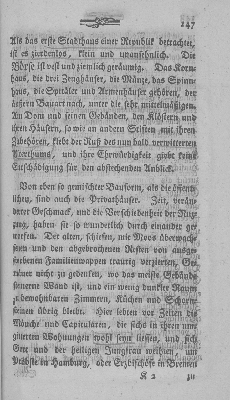 247
Als das erste Stadthaus einer Republik betrachtet,
ist es zierdenlos, klein und unansehnlich. Die
Börse ist vest und ziemlich geräumig. Das Korn-
haus, die drei Zeughäuser, die Münze, das Spinn-
haus, die Spitäler und Armenhäuser gehören, der
äussern Bauart nach, unter die sehr mittelmäßigen.
Am Dom und seinen Gebäuden, den Klöstern und
ihren Häusern, so wie an andern Stiften mit ihren
Zubehören, klebt der Ruß des nun bald verwitterten
Alterthums, und ihre Ehrwürdigkeit giebt keine
Entschädigung für den abstechenden Anblick.
Von eben so gemischter Bauform, als die öffent-
lichen, sind auch die Privathäuser. Zeit, verän-
derter Geschmack, und die Verschiedenheit der Nut-
zung, hat sie so wunderlich durch einander ge-
worfen. Der alten, schiefen, mit Moos überwachs-
enen und den abgebrochenen Resten von ausge-
storbenen Familienwappen traurig verzierten, Ge-
bäude nicht zu gedenken, wo das meiste Gebäude
steinerne Wand ist, und ein wenig dunkler Raum
zu bewohnbaren Zimmern, Küchen und Schorn-
steinen übrig bleibt. Hier lebten vor Zeiten die
Mönche und Capitularen, die sichs in ihren um-
zäunten Wohnungen wohl seyn liessen, und sich
Gott und der heiligen Jungfrau weihten, um
Präbste in Hamburg, oder Erzbischöfe in Bremen
K 2 zu